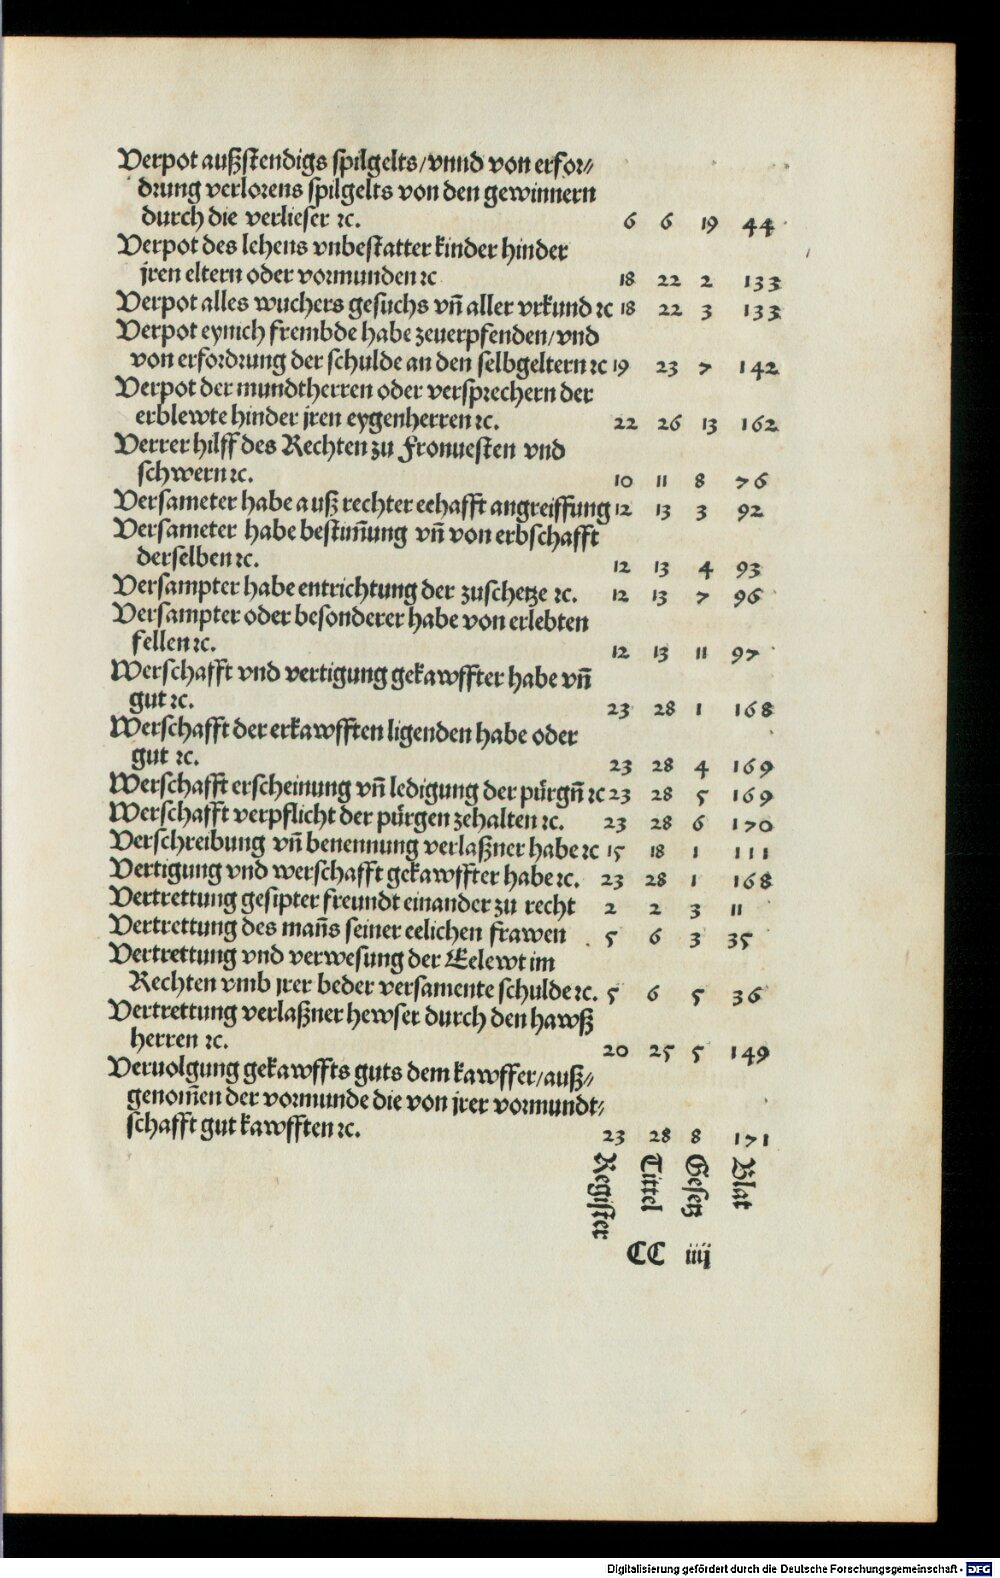 Verpot außstendigs spilgelts/vnnd von erfor⸗
drung verlorens spilgelts von den gewinnern
durch die verlieser ⁊c. 6 6 19 44
Verpot des lehens vnbestatter kinder hinder
jren eltern oder vormunden ⁊c 18 22 2 133
Verpot alles wuchers gesuchs vn̄ aller vrkund ⁊c 18 22 3 133
Verpot eynich frembde habe zeuerpfenden/vnd
von erfordrung der schulde an den selbgeltern ⁊c 19 23 7 142
Verpot der mundtherren oder versprechern der
erblewte hinder jren eygenherren ⁊c. 22 26 13 162
Verrer hilff des Rechten zu Fronuesten vnd
schwern ⁊c. 10 11 8 76
Versameter habe auß rechter eehafft angreiffung 12 13 3 92
Versameter habe bestim̄ung vn̄ von erbschafft
derselben ⁊c. 12 13 4 93
Versampter habe entrichtung der zuschetze ⁊c. 12 13 7 96
Versampter oder besonderer habe von erlebten
fellen ⁊c. 12 13 11 97
Werschafft vnd vertigung gekawffter habe vn̄
gut ⁊c. 23 28 1 168
Werschafft der erkawfften ligenden habe oder
gut ⁊c. 23 28 4 169
Werschafft erscheinung vn̄ ledigung der pürgn̄ ⁊c 23 28 5 169
Werschafft verpflicht der pürgen zehalten ⁊c. 23 28 6 170
Verschreibung vn̄ benennung verlaßner habe ⁊c 15 18 1 111
Vertigung vnd werschafft gekawffter habe ⁊c. 23 28 1 168
Vertrettung gesipter freundt einander zu recht 2 2 3 11
Vertrettung des man̄s seiner eelichen frawen 5 6 3 35
Vertrettung vnd verwesung der Eelewt im
Rechten vmb jrer beder versamente schulde ⁊c. 5 6 5 36
Vertrettung verlaßner hewser durch den hawß
herren ⁊c. 20 25 5 149
Veruolgung gekawffts guts dem kawffer/auß⸗
genom̄en der vormunde die von jrer vormundt⸗
schafft gut kawfften ⁊c. 23 28 8 171
Register Tittel Gesetz Blat
CC iiij
Digitalisierung gefördert durch die Deutsche Forschungsgemeinschaft - DFG